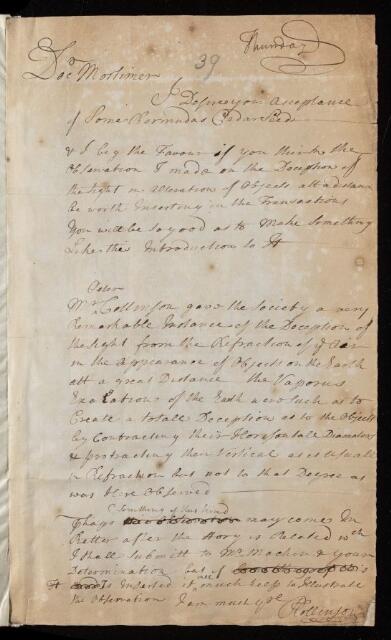 Thursday
39
Doc Mortimer
I Desire your Acceptance
of Some Bermudas Cedar Seed
& I beg the Favour if you think the
Observation I made on the Deception of
the Sight in alteration of Objects att a distance
be worth Inserting in the Transactions
You will be so good as to Make Something
Like this Introduction to It
Peter
Mr Collinson gave the Society a very
Remarkable Instance of the Deception of
the Sight from the Refraction of ye Air
in the Appearance of Objects on the Earth
att a great Distance the Vapours
Exalations of the Earth were such as to
Create a totall Deception as to the Objects
by Contracting their Horesontall Diameters
& protracting their Vertical as is usuall
in Refraction but not to that Degree as
was Here Observed
Something of this kind
may come In
Better after the Story is Related wch
I shall submitt to Mr Machin & Your
Determination but if
It is Inserted it will much help to Illustrate
the Observation I am much yrs
P Collinson